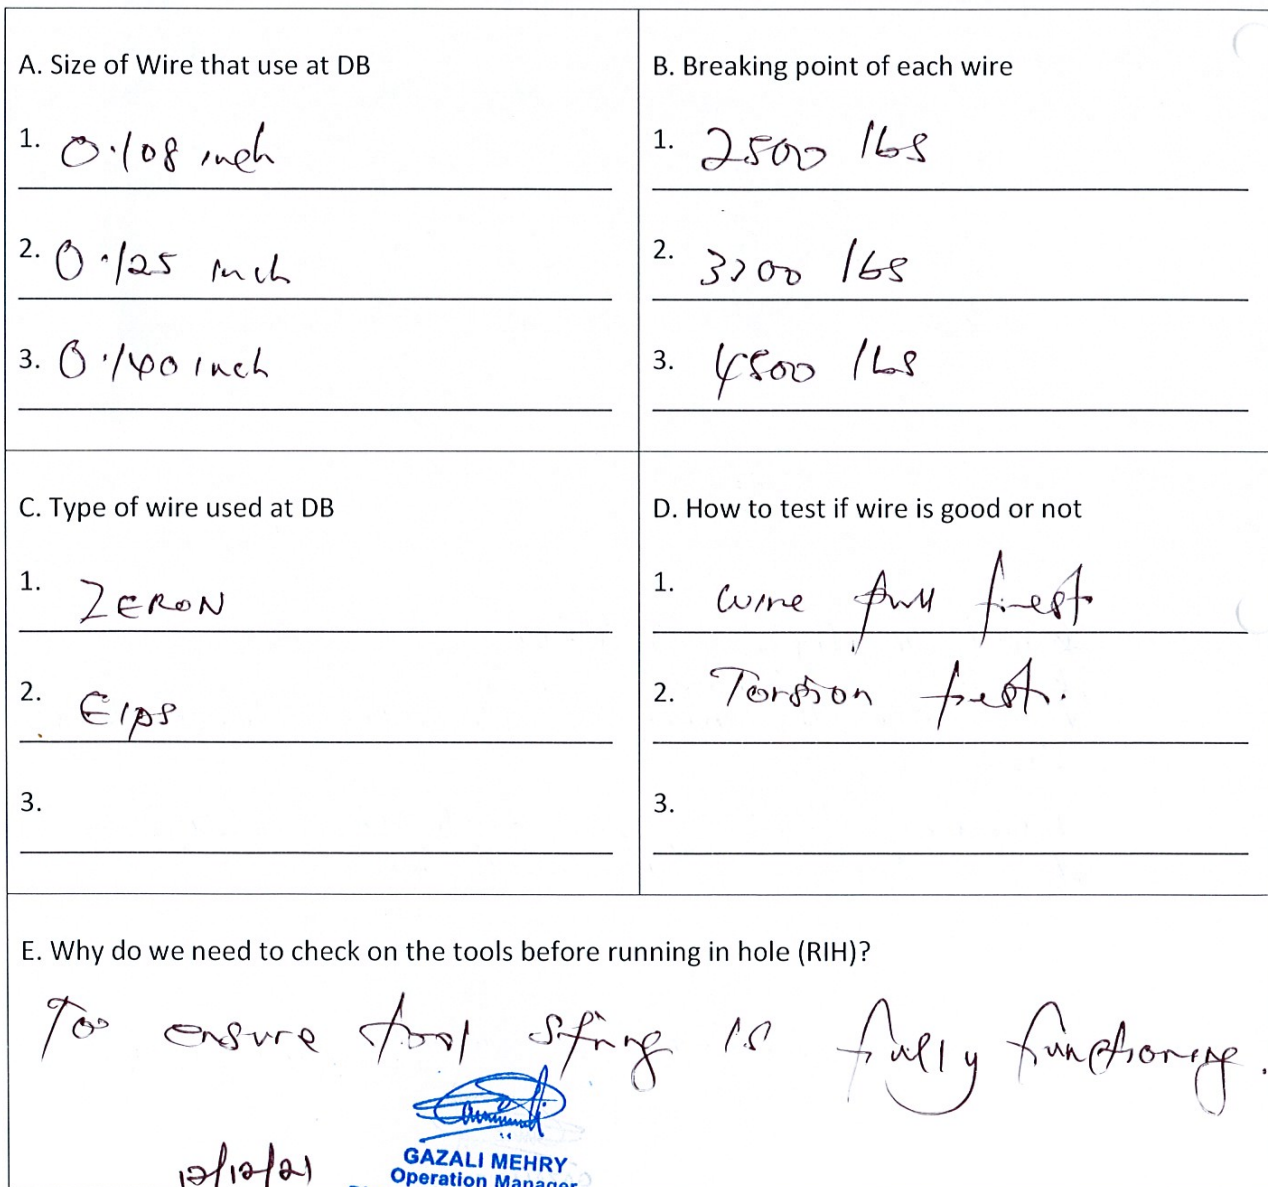 A. Size of Wire that use at DB
1. 0.108 inch
2. 0.125 inch
3. 0.140 inch
B. Breaking point of each wire
1. 2500 lbs
2. 3200 lbs
3. 4500 lbs
C. Type of wire used at DB
1. ZERON
2. EIPS
3.
D. How to test if wire is good or not
1. Wire pull test
2. Torsion test.
3.
E. Why do we need to check on the tools before running in hole (RIH)?
To ensure tool string is fully functioning.
12/12/21
GAZALI MEHRY
Operation Manager